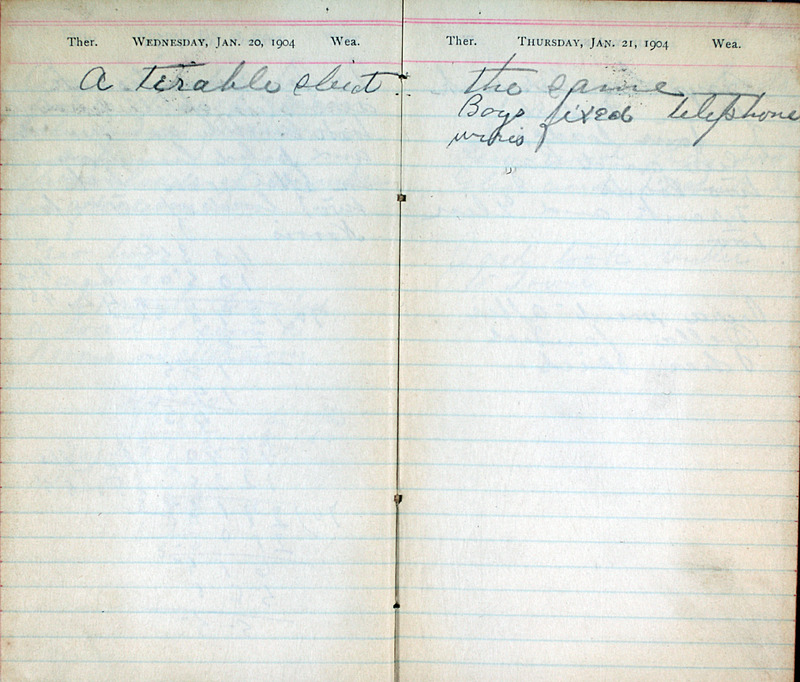 Ther. WEDNESDAY, JAN. 20, 1904 Wea.
A tirable sleet
Ther. THURSDAY, JAN. 21, 1904 Wea.
the same
Boys fixed telephone
wires